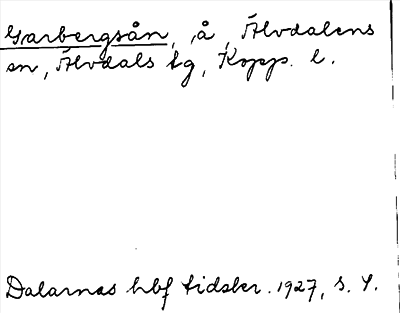 Garbergsån, å, Älvdalens
sn, Älvdals tg, Kopp. l.
Dalarnas hbf tidskr. 1927, s. 4.